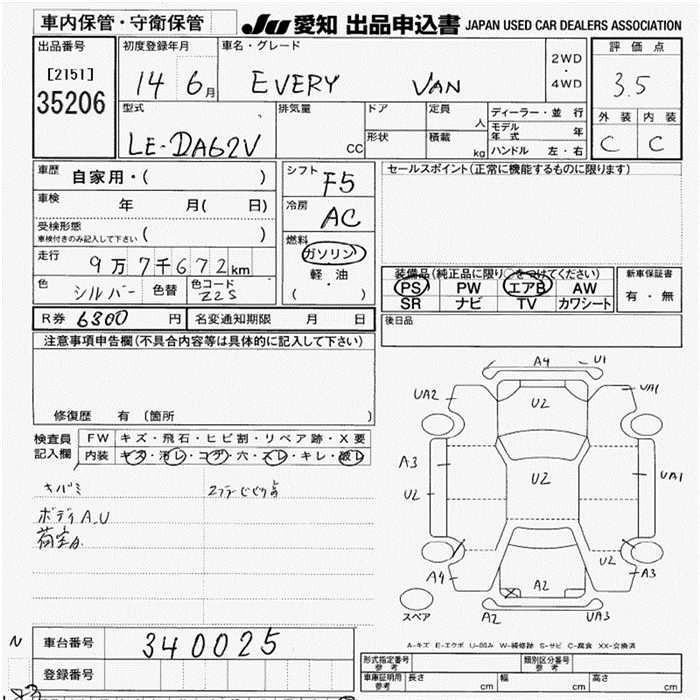 車内保管・守衛保管 JU 愛知 出品申込書 JAPAN USED CAR DEALERS ASSOCIATION
出品番号 初度登録年月 車名・グレード 評価点
[2151] 14 6月 EVERY VAN 2WD・4WD 3.5
35206
型式 排気量 ドア 定員 ディーラー・並行 外装 内装
LE-DA62V CC 形状 人 モデル年式 年 C C
積載 kg ハンドル 左・右
車歴 自家用・( ) シフト F5 セールスポイント(正常に機能するものに限ります)
車検 年 月( 日) 冷房 AC
受検形態
車検付きのみ記入して下さい ( )
燃料 ガソリン
走行 9万7千672km 軽・油
( )
装備品(純正品に限り○をつけてください) 新車保証書
色 シルバー 色替 色コード Z2S
PS PW エアB AW 有・無
SR ナビ TV カワシート
R券 6300円 名変通知期限 月 日 後日品
注意事項申告欄(不具合内容等は具体的に記入して下さい)
修復歴 有 〔箇所 )
検査員記入欄 FW キズ・飛石・ヒビ割・リペア跡・X要
内装 キズ・汚レ・コゲ・穴・スレ・キレ・破レ
キバミ
ボディA.U
荷室A.
A4 U1
UA2 U2 UA1
A3 U2 UA1
U2
U2
A4 A2 A3
スペア A2 UA3
A-キズ E-エクボ U-凹み W-補修跡 S-サビ C-腐食 XX-交換済
N 車台番号 340025
登録番号
形式指定番号 参考 類別区分番号 参考
車庫証明用 参考 長さ cm 幅 cm 高さ cm